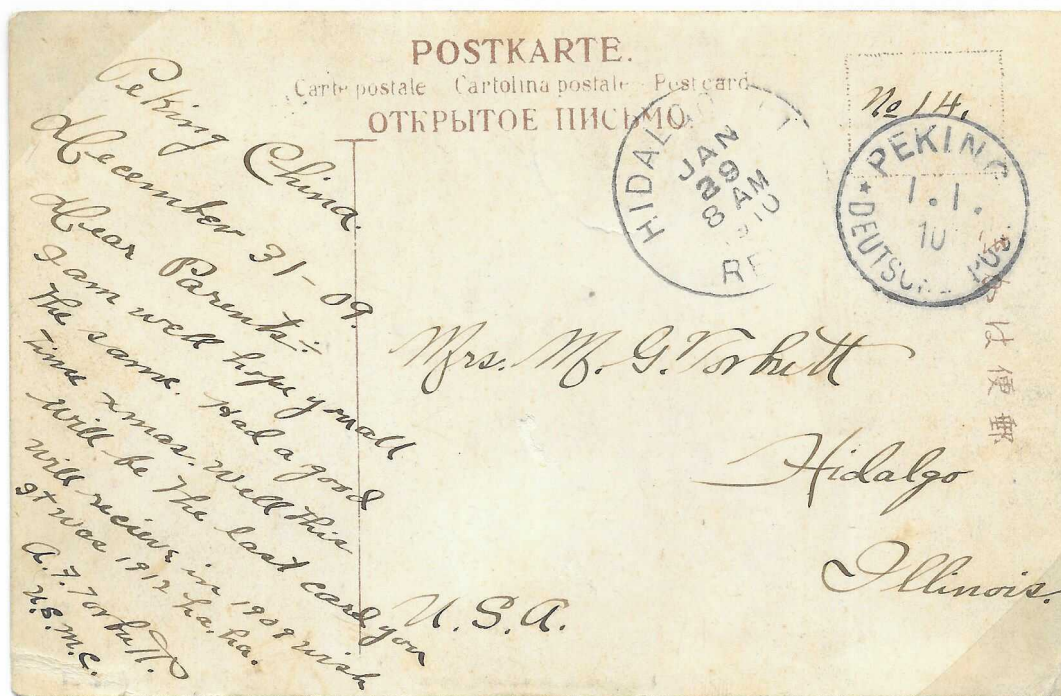 POSTKARTE.
Carte postale Cartolina postale Postcard
ОТКРЫТОЕ ПИСЬМО.
No 14.
HIDALGO
JAN
29
8 AM
1910
REC
PEKING
1.1.
10
* DEUTSCHE POST
郵便は
Peking China.
December 31-09.
Dear Parents:-
I am well hope you all
the same. Had a good
time xmas. Well this
will be the last card you
will recieve in 1909 wish
it was 1912 ha. ha.
A. F. Torbutt.
U.S.M.C.
Mrs. M. G. Torbutt
Hidalgo
Illinois.
U.S.A.